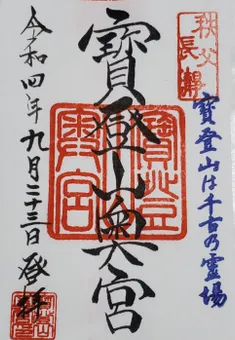 秩父
長瀞
寶登山は千古の霊場
寶登山奥宮
寶登山
奥宮
令和四年九月二十三日登拝